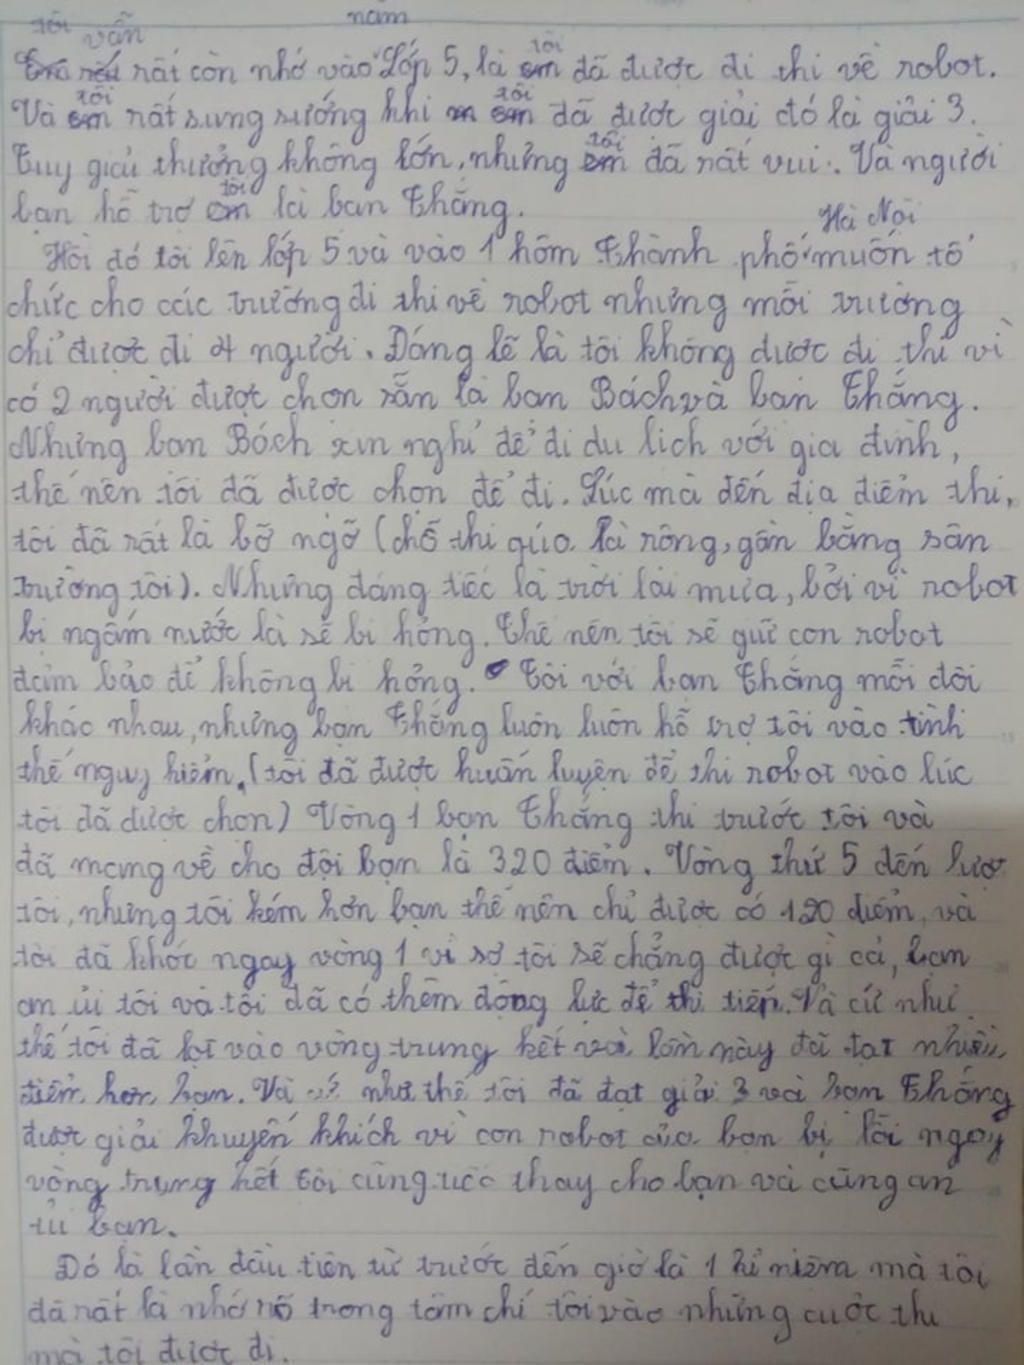 tôi vẫn năm
Em rất còn nhớ vào Lớp 5, là em tôi đã được đi thi về robot.
Và em tôi rất sung sướng khi em tôi đã được giải đó là giải 3.
Tuy giải thưởng không lớn, nhưng em tôi đã rất vui. Và người
bạn hỗ trợ em tôi là bạn Thắng.
Hà Nội
Hồi đó tôi lên lớp 5 và vào 1 hôm Thành phố muốn tổ
chức cho các trường đi thi về robot nhưng mỗi trường
chỉ được đi 4 người. Đáng lẽ là tôi không được đi thi vì
có 2 người được chọn sẵn là bạn Bách và bạn Thắng.
Nhưng bạn Bách xin nghỉ để đi du lịch với gia đình,
thế nên tôi đã được chọn để đi. Lúc mà đến địa điểm thi,
tôi đã rất là bỡ ngỡ (chỗ thi qúa là rộng, gần bằng sân
trường tôi). Nhưng đáng tiếc là trời lại mưa, bởi vì robot
bị ngấm nước là sẽ bị hỏng. Thế nên tôi sẽ giữ con robot
đảm bảo để không bị hỏng. Tôi với bạn Thắng mỗi đội
khác nhau, nhưng bạn Thắng luôn luôn hỗ trợ tôi vào tình
thế nguy hiểm. (tôi đã được huấn luyện để thi robot vào lúc
tôi đã được chọn) Vòng 1 bạn Thắng thi trước tôi và
đã mang về cho đội bạn là 320 điểm. Vòng thứ 5 đến lượt
tôi, nhưng tôi kém hơn bạn thế nên chỉ được có 120 điểm, và
tôi đã khóc ngay vòng 1 vì sợ tôi sẽ chẳng được gì cả, bạn
an ủi tôi và tôi đã có thêm động lực để thi tiếp. Và cứ như
thế tôi đã lọt vào vòng trung kết và lần này đã đạt nhiều
điểm hơn bạn. Và cứ như thế tôi đã đạt giải 3 và bạn Thắng
được giải khuyến khích vì con robot của bạn bị lỗi ngay
vòng trung kết tôi cũng thay cho bạn và cũng an
ủi bạn.
Đó là lần đầu tiên từ trước đến giờ là 1 kỉ niệm mà tôi
đã rất là nhớ rõ trong tâm chí tôi vào những cuộc thi
mà tôi được đi.